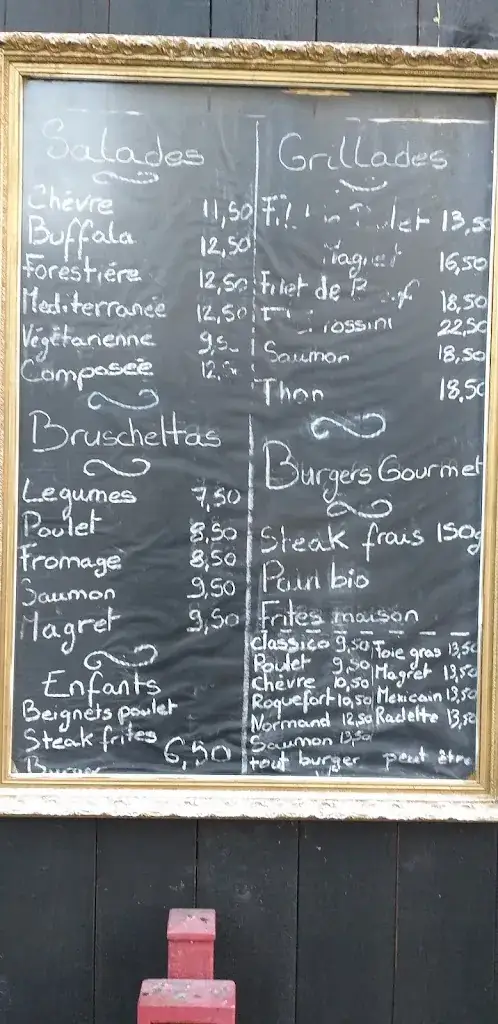 Salades
Chèvre 11,50
Buffala 12,50
Forestière 12,50
Mediterranée 12,50
Végétarienne
Composée
Bruschettas
Legumes 7,50
Poulet 8,50
Fromage 8,50
Saumon 9,50
Magret 9,50
Enfants
Beignets poulet
Steak frites
6,50
Burger
Grillades
13,50
Magret 16,50
Filet de 18,50
Rossini 22,50
Saumon 18,50
Thon 18,50
Burgers Gourmet
Steak frais 150g
Pain bio
Frites maison
Classico 9,50 Foie gras 13,50
Poulet 9,50 Magret 13,50
Chèvre 10,50 Mexicain 13,50
Roquefort 10,50 Raclette 13,50
Normand 12,50
Saumon 13,50
tout burger peut être